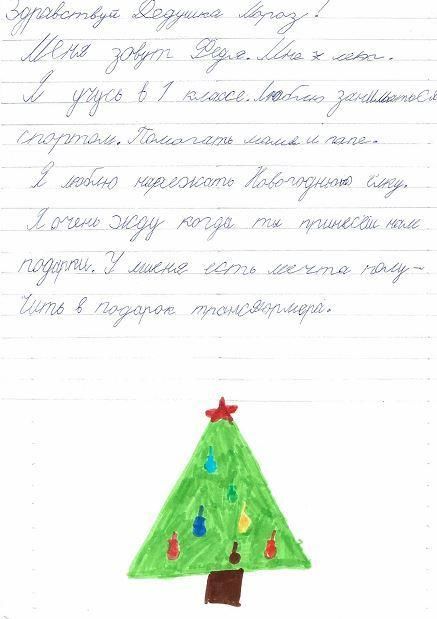 Здравствуй Дедушка Мороз!
Меня зовут Федя. Мне 7 лет.
Я учусь в 1 классе. Люблю заниматься
спортом. Помогать маме и папе.
Я люблю наряжать Новогоднюю ёлку.
Я очень жду когда ты принесёш нам
подарки. У меня есть мечта полу-
чить в подарок трансформера.